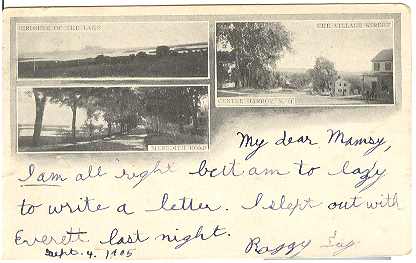 GLIMPSE OF THE LAKE
THE VILLAGE STREET
CENTRE HARBOR, N. H.
MEREDITH ROAD
My dear Mamsy,
I am all right but am to lazy
to write a letter. I slept out with
Everett last night.
Sept. 4, 1905
Raggy